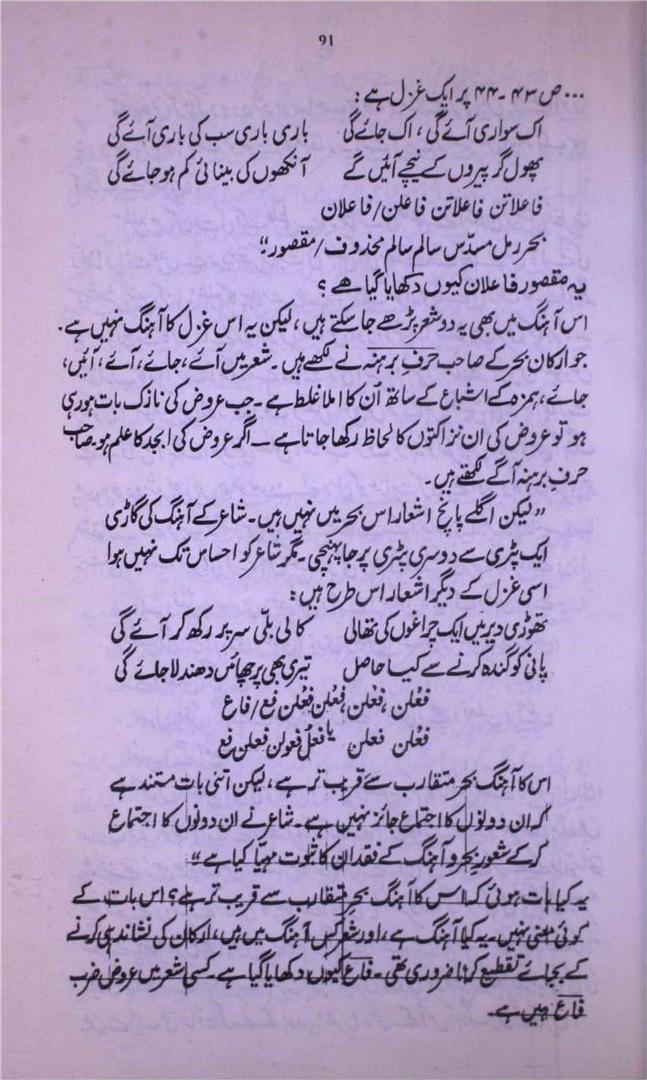 91
... ص ۴۳-۴۴ پر ایک غزل ہے:
اک سواری آئے گی، اک جائے گی باری باری سب کی باری آئے گی
پھول گر پیروں کے نیچے آئیں گے آنکھوں کی بینائی کم ہو جائے گی
فاعلاتن فاعلاتن فاعلن/فاعلان
بحر رمل مسدّس سالم سالم محذوف/مقصور"
یہ مقصور فاعلان کیوں دکھایا گیا ہے؟
اس آہنگ میں بھی یہ دو شعر پڑھے جا سکتے ہیں، لیکن یہ اس غزل کا آہنگ نہیں ہے۔
جو ارکان بحر کے صاحب حرفِ برہنہ نے لکھے ہیں۔ شعر میں آئے، جائے، آئے، آئیں،
جائے، ہمزہ کے اشباع کے ساتھ اُن کا املا غلط ہے۔ جب عروض کی نازک بات ہو رہی
ہو تو عروض کی ان نزاکتوں کا لحاظ رکھا جاتا ہے۔ اگر عروض کی ابجد کا علم ہو۔ صاحب
حرفِ برہنہ آگے لکھتے ہیں۔
"لیکن اگلے پانچ اشعار اس بحر میں نہیں ہیں۔ شاعر کے آہنگ کی گاڑی
ایک پٹری سے دوسری پٹری پر جا پہنچی۔ مگر شاعر کو احساس تک نہیں ہوا
اسی غزل کے دیگر اشعار اس طرح ہیں:
تھوڑی دیر میں ایک چراغوں کی تھالی کالی بلّی سر پر رکھ کر آئے گی
پانی کو گندہ کرنے سے کیا حاصل تیری بھی پرچھائیں دھندلا جائے گی
فعْلن فعْلن فعْلن فعْلن فع/فاع
فعْلن فعلن یا فعلُ فعولن فعلن فع
اس کا آہنگ بحر متقارب سے قریب تر ہے، لیکن اتنی بات مستند ہے
کہ ان دونوں کا اجتماع جائز نہیں ہے۔ شاعر نے ان دونوں کا اجتماع
کر کے شعورِ بحر و آہنگ کے فقدان کا ثبوت مہیّا کیا ہے"۔
یہ کیا بات ہوئی کہ اس کا آہنگ بحرِ متقارب سے قریب تر ہے؟ اس بات کے
کوئی معنی نہیں۔ یہ کیا آہنگ ہے، اور شعر کس آہنگ میں ہیں، ارکان کی نشاندہی کرنے
کے بجائے تقطیع کرنا ضروری تھی۔ فاع کیوں دکھایا گیا ہے۔ کسی شعر میں عروض ضرب
فاع نہیں ہے۔